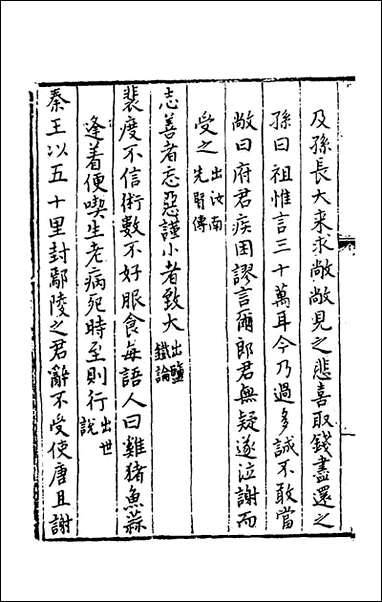 及孫長大来求敞敞見之悲喜取錢盡還之
孫曰祖惟言三十萬耳今乃過多誠不敢當
敞曰府君疾困謬言爾郎君無疑遂泣謝而
受之出汝南先賢傳
志善者忘惡謹小者致大出鹽鐵論
裴度不信術數不好服食每語人曰雞猪魚蒜
逢着便喫生老病死時至則行出世説
秦王以五十里封鄢陵之君辭不受使唐且謝